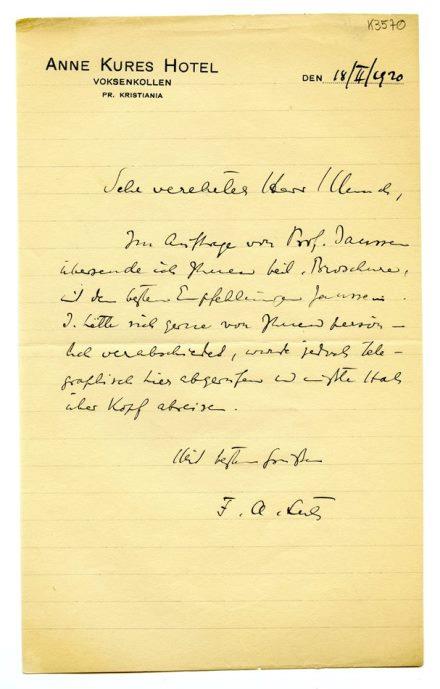 K3570
ANNE KURES HOTEL
VOKSENKOLLEN
PR. KRISTIANIA
DEN 18/II/1920
Sehr verehrter Herr Munch,
Im Auftrage von Prof.
übersende ich Ihnen beil. Broschüre,
mit den besten Empfehlungen
hätte sich gerne von Ihnen persön-
lich verabschiedet, wurde jedoch tele-
graphisch hier abgerufen u mußte Hals
über Kopf abreisen.
Mit besten Grüßen
F. A.